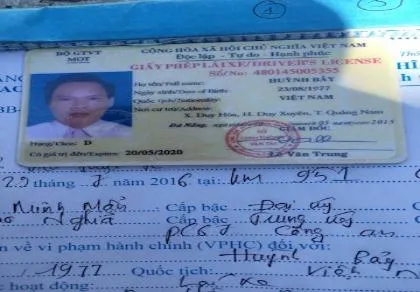 BỘ GTVT
MOT
CỘNG HÒA XÃ HỘI CHỦ NGHĨA VIỆT NAM
Độc lập - Tự do - Hạnh phúc
GIẤY PHÉP LÁI XE/DRIVER'S LICENSE
Số/No: 480145005355
Họ tên/Full name: HUỲNH BẢY
Ngày sinh/Date of Birth: 23/08/1977
Quốc tịch/Nationality: VIỆT NAM
Nơi cư trú/Address:
X. Duy Hòa, H. Duy Xuyên, T. Quảng Nam
Đà Nẵng, 05 2015
GIÁM ĐỐC
Hạng/Class: D
Có giá trị đến/Expires: 20/05/2020
Lê Văn Trung
tháng năm 2016 tại: km 951
Minh Mẫn Cấp bậc Đại úy
Nghĩa Cấp bậc Trung úy
Công an
vi phạm hành chính (VPHC) đối với:
Huỳnh Bảy
1977 Quốc tịch: Việt
hoạt động: Lái xe